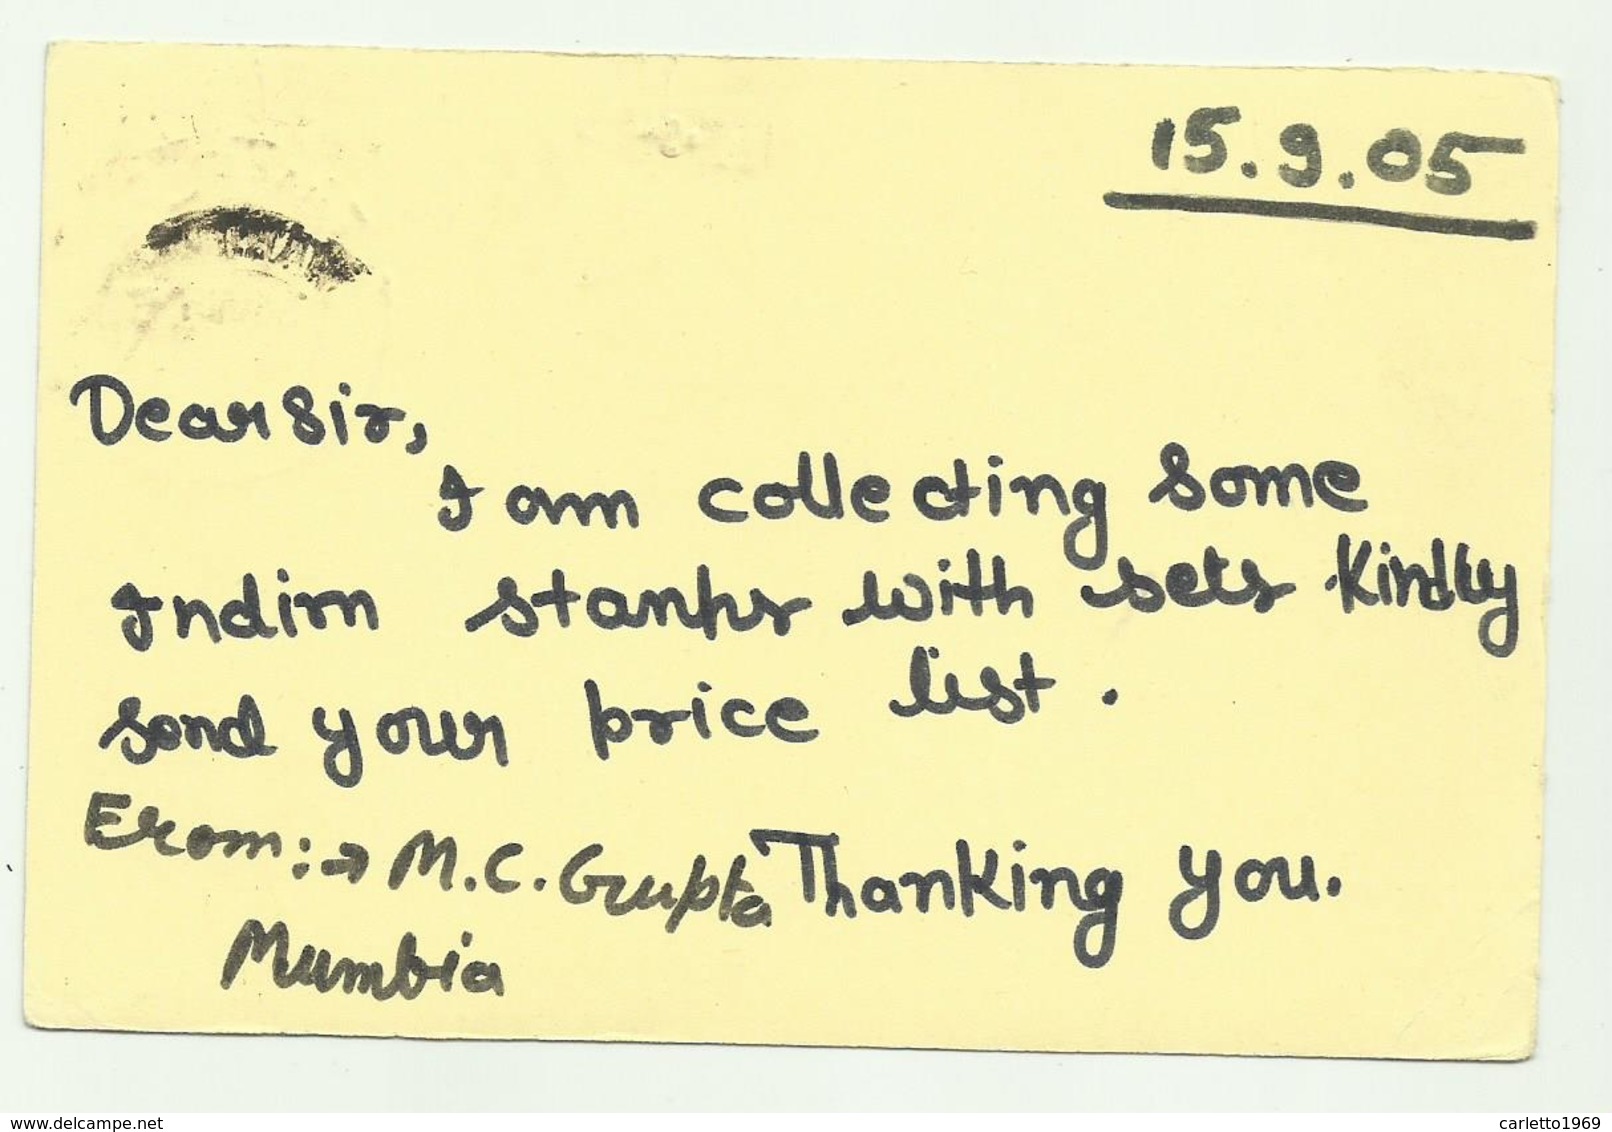 15.9.05
Dear Sir,
I am collecting some
Indian stamps with sets Kindly
send your price list.
From:→ M.C. Gupta Thanking you.
Mumbia
www.delcampe.net
carletto1969